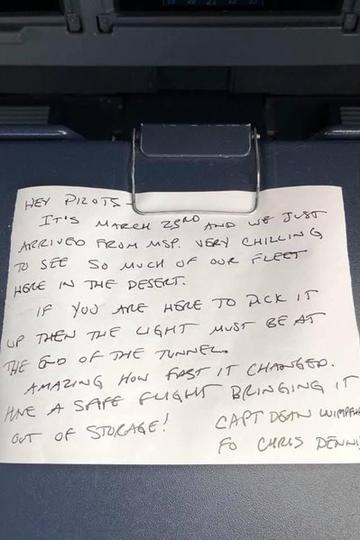 HEY PILOTS-
IT'S MARCH 23RD AND WE JUST
ARRIVED FROM MSP. VERY CHILLING
TO SEE SO MUCH OF OUR FLEET
HERE IN THE DESERT.
IF YOU ARE HERE TO PICK IT
UP THEN THE LIGHT MUST BE AT
THE END OF THE TUNNEL.
AMAZING HOW FAST IT CHANGED.
HAVE A SAFE FLIGHT BRINGING IT
OUT OF STORAGE!
CAPT DEAN
FO CHRIS DENNI